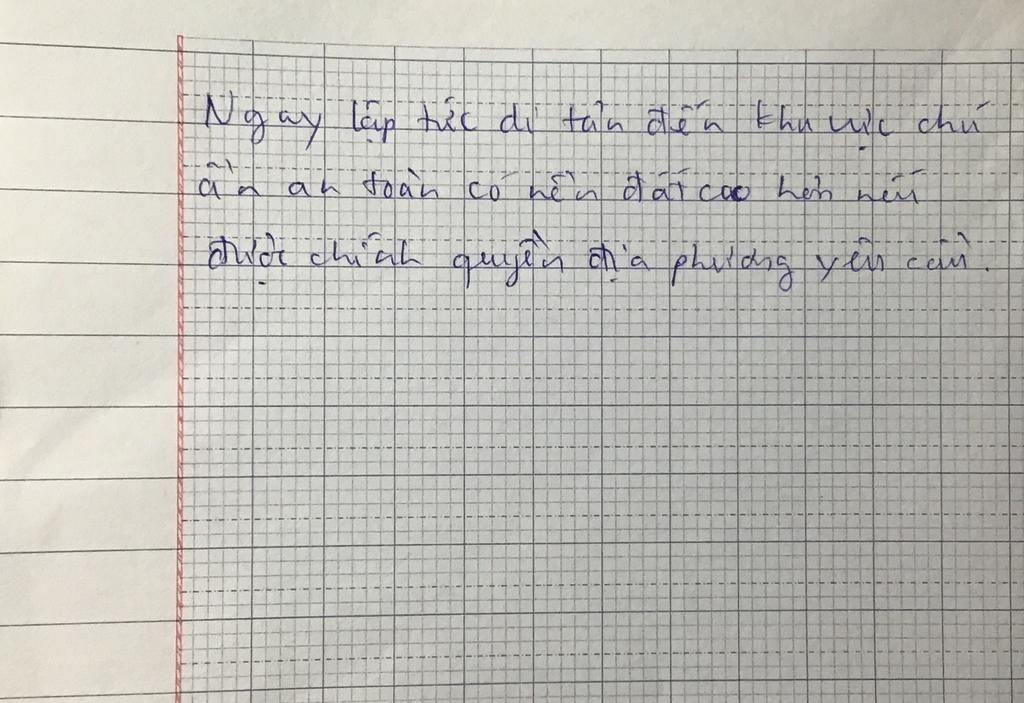 Ngay lập tức di tản đến khu vực chú
ẩn an toàn có nền đất cao hơn nếu
được chính quyền địa phương yêu cầu.